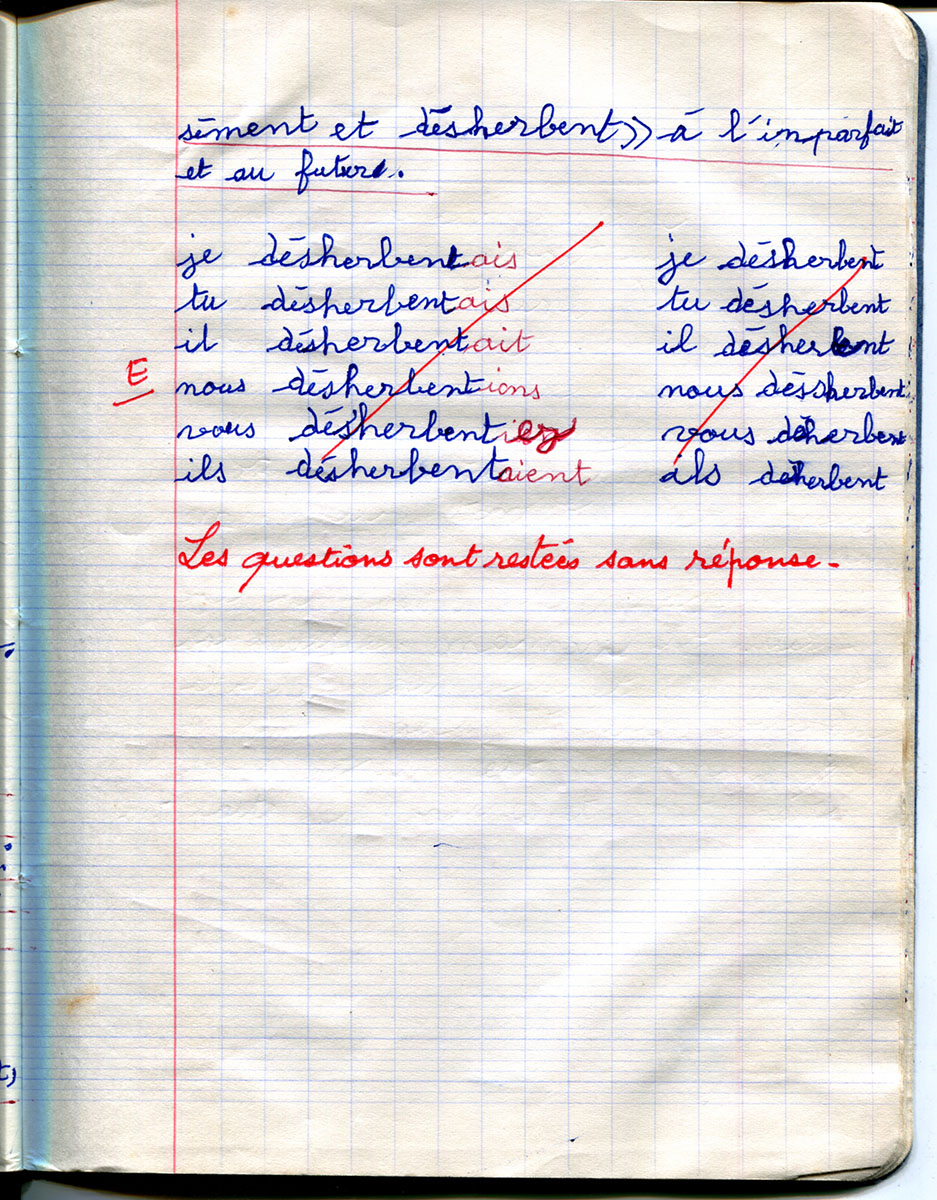 sèment et désherbent» à l'imparfait
et au futur.
je désherbentais je désherbent
tu désherbentais tu désherbent
il désherbentait il désherbent
E nous désherbentions nous désherbent
vous désherbentiez vous déherbent
ils désherbentaient ils déherbent
Les questions sont restées sans réponse.